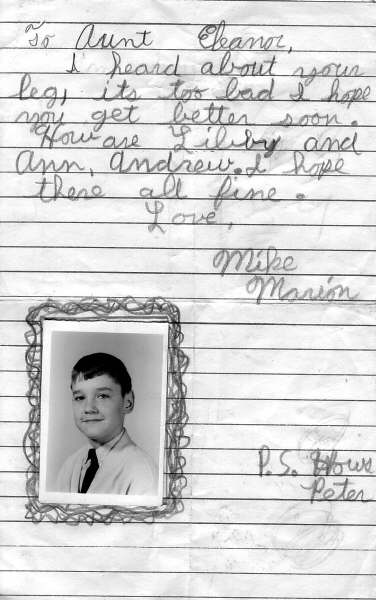 To Aunt Eleanor,
I heard about your
leg, its too bad I hope
you get better soon.
How are Libby and
Ann, Andrew. I hope
there all fine.
Love,
Mike
Marion
P.S. Hows
Peter